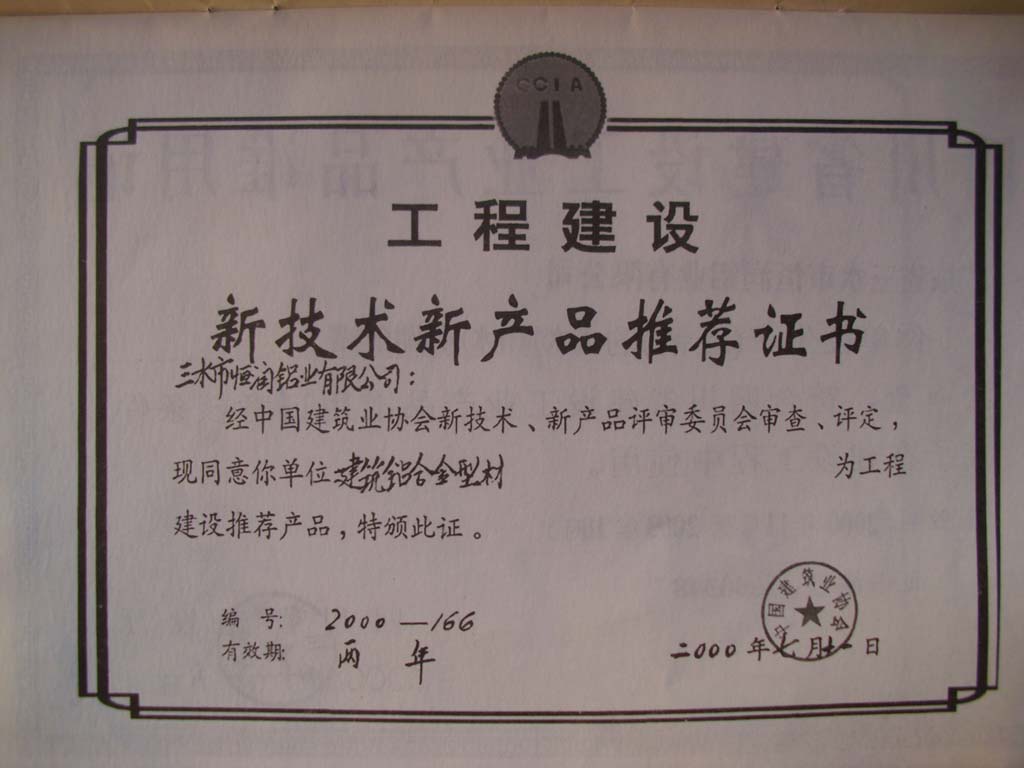 CCIA
工程建设
新技术新产品推荐证书
三水市恒润铝业有限公司：
经中国建筑业协会新技术、新产品评审委员会审查、评定，
现同意你单位建筑铝合金型材 为工程
建设推荐产品，特颁此证。
编 号: 2000—166
有效期: 两 年
中国建筑业协会
二000年七月十一日